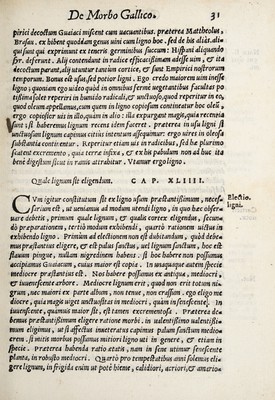 De Morbo Gallico. 31
pirici decoctum Guaiaci misceri cum uacuantibus. præterea Mattheolus,
Brasau. ex hebeno quoddam genus uini cum ligno hoc. sed de his aliàs. ali-
qui sunt qui exprimunt ex teneris germinibus succum: Hispani aliquando
syr. deferunt. Alij contendunt in radice efficacissimam adesse uim, & ita
decoctum parant. alij utuntur tantùm cortice, & sunt Emperici nostrorum
temporum. Bonus est usus, sed potior ligni. Ego credo maiorem uim inesse
ligno; quoniam ego uideo quòd in omnibus fermè uegetantibus facultas po
tissima solet reperiri in humido radicali, & unctuoso, quod reperitur in eo,
quod oleum appellamus, cum quem in ligno copiosum contineatur hoc oleũ,
ergo copiosior uis in illo, quàm in alio: illa expurgant magis, quia recentia
sunt: si haberemus lignum recens idem foret. præterea in usu ligni si
unctuosum lignum capimus citiùs intentum assequimur: ergo uires in oleosa
substantia continentur. Reperitur etiam uis in radicibus, sed hæ plurimo
scatent excremento, quia terræ infixæ, & ex his pabulum non ad huc ita
benè digestum sicut in ramis attrahitur. Vtamur ergo ligno.
Quale lignum sit eligendum. CAP. XLIIII.
CVm igitur constitutum sit ex ligno usum præstantissimum, neces-
sarium est, ut ueniamus ad modum utendi ligno, in quo hæc obser-
uare debetis, primum quale lignum, & qualis cortex eligendus, secun-
dò præparationem, tertiò modum exhibendi, quartò rationem uictus in
exhibendo ligno. Primùm ad electionem non est dubitandum, quòd ebenus
præstantior eligere, & est palus sanctus, uel lignum sanctum, hoc est
flauum pingue, nullam nigredinem habens. si hoc habere non possumus
accipiamus Guaiacum, cuius maior est copia. In unoquoque autem species
mediocre præstantius est. Nos habere possumus ex antiquo, mediocri,
& iuuenescente arbore. Mediocre lignum erit, quod non erit totum ni-
grum, nec maiori ex parte album, non tenue, non crassum. ego eligo me
diocre, quia magis uiget unctuositas in mediocri, quàm in senescente. In
iuuenescente, quamuis maior sit, est tamen excrementosa. Præterea de-
bemus præstantissimum eligere ratione morbi. in ualentissimo ualentissi-
mum eligimus, ut si affectus inueteratus capimus palum sanctum medio-
crem. si mitis morbus possumus mitiori ligno uti in genere, & etiam in
specie. Præterea habenda ratio ætatis, nam in sene utimur senescente
planta, in robusto mediocri. Quartò pro tempestatibus anni solemus eli-
gere lignum, in frigida enim ut potè hieme, calidiori, acriori, & amario-
Electio.
ligni.